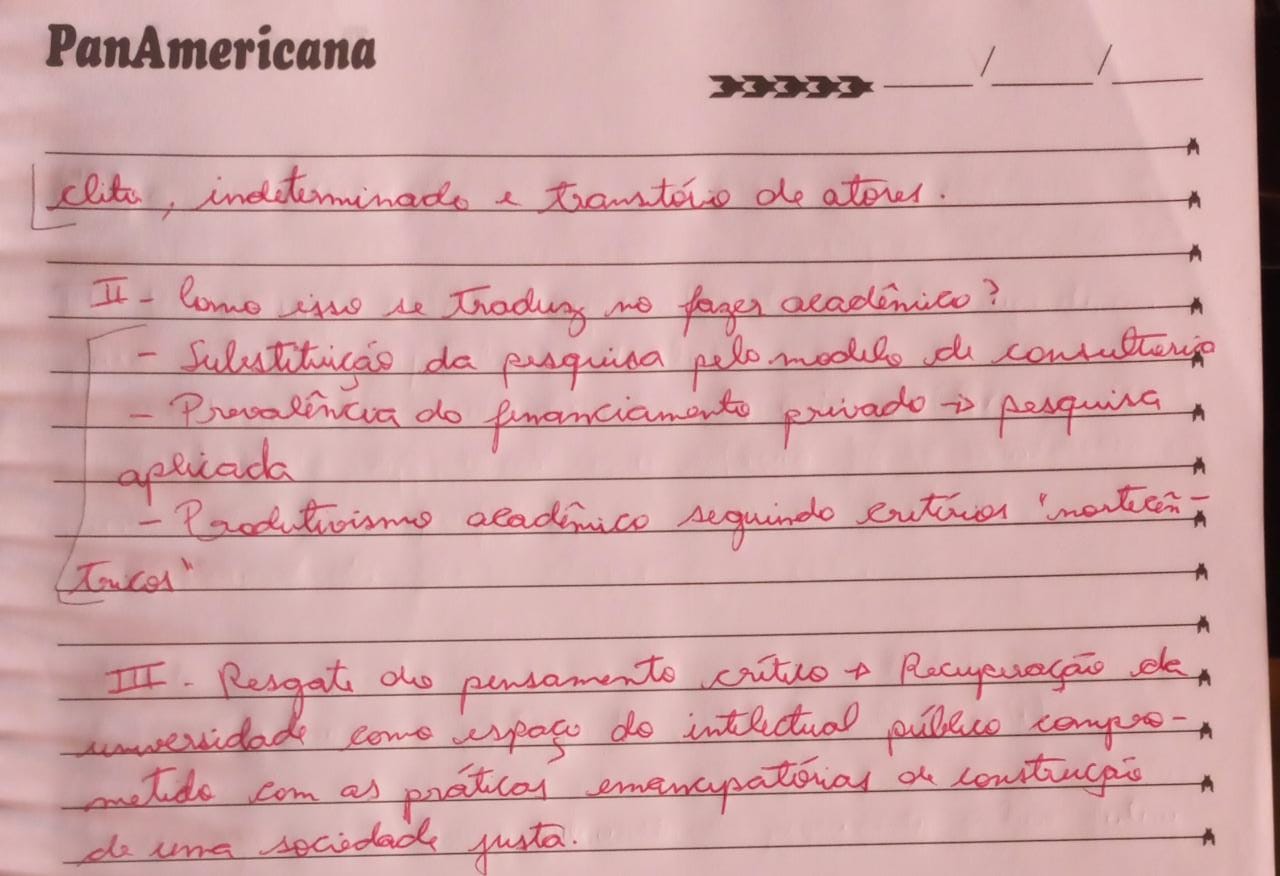 PanAmericana
elite, indeterminado e transitório de atores.
II - Como isso se traduz no fazer acadêmico?
- Substituição da pesquisa pelo modelo de consultoria
- Prevalência do financiamento privado → pesquisa
aplicada
- Produtivismo acadêmico seguindo critérios "nortecên-
tricos"
III - Resgate do pensamento crítico → Recuperação da
universidade como espaço do intelectual público compro-
metido com as práticas emancipatórias de construção
de uma sociedade justa.